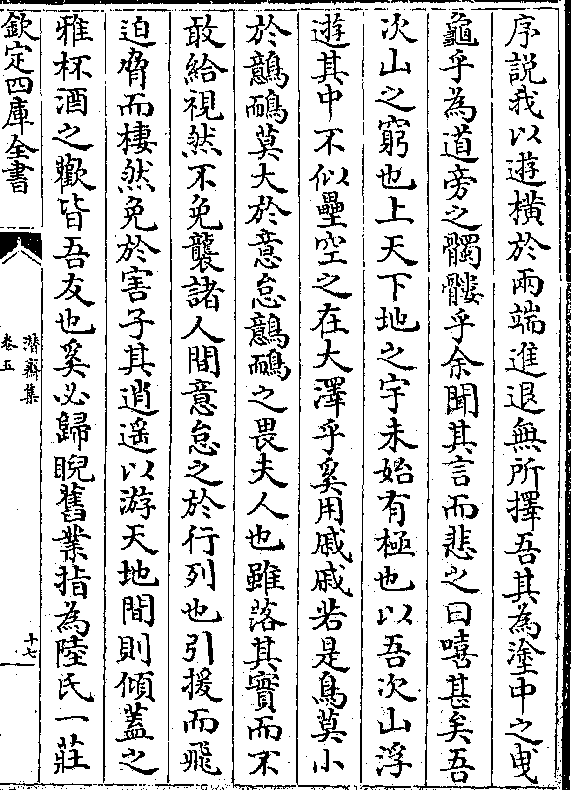 序説我以遊横於兩端進退無所擇吾其為塗中之曵
龜乎為道旁之髑髏乎余聞其言而悲之曰嘻甚矣吾
次山之窮也上天下地之宇未始有極也以吾次山浮
遊其中不似壘空之在大澤乎奚用戚戚若是鳥莫小
於鷾鴯莫大於意怠鷾鴯之畏夫人也雖落其實而不
敢給視然不免襲諸人間意怠之於行列也引援而飛
迫脅而棲然免於害子其逍遥以游天地間則傾蓋之
雅杯酒之歡皆吾友也奚必歸睨舊業指為陸氏一莊
欽定四庫全書
潛齋集
卷五
十七